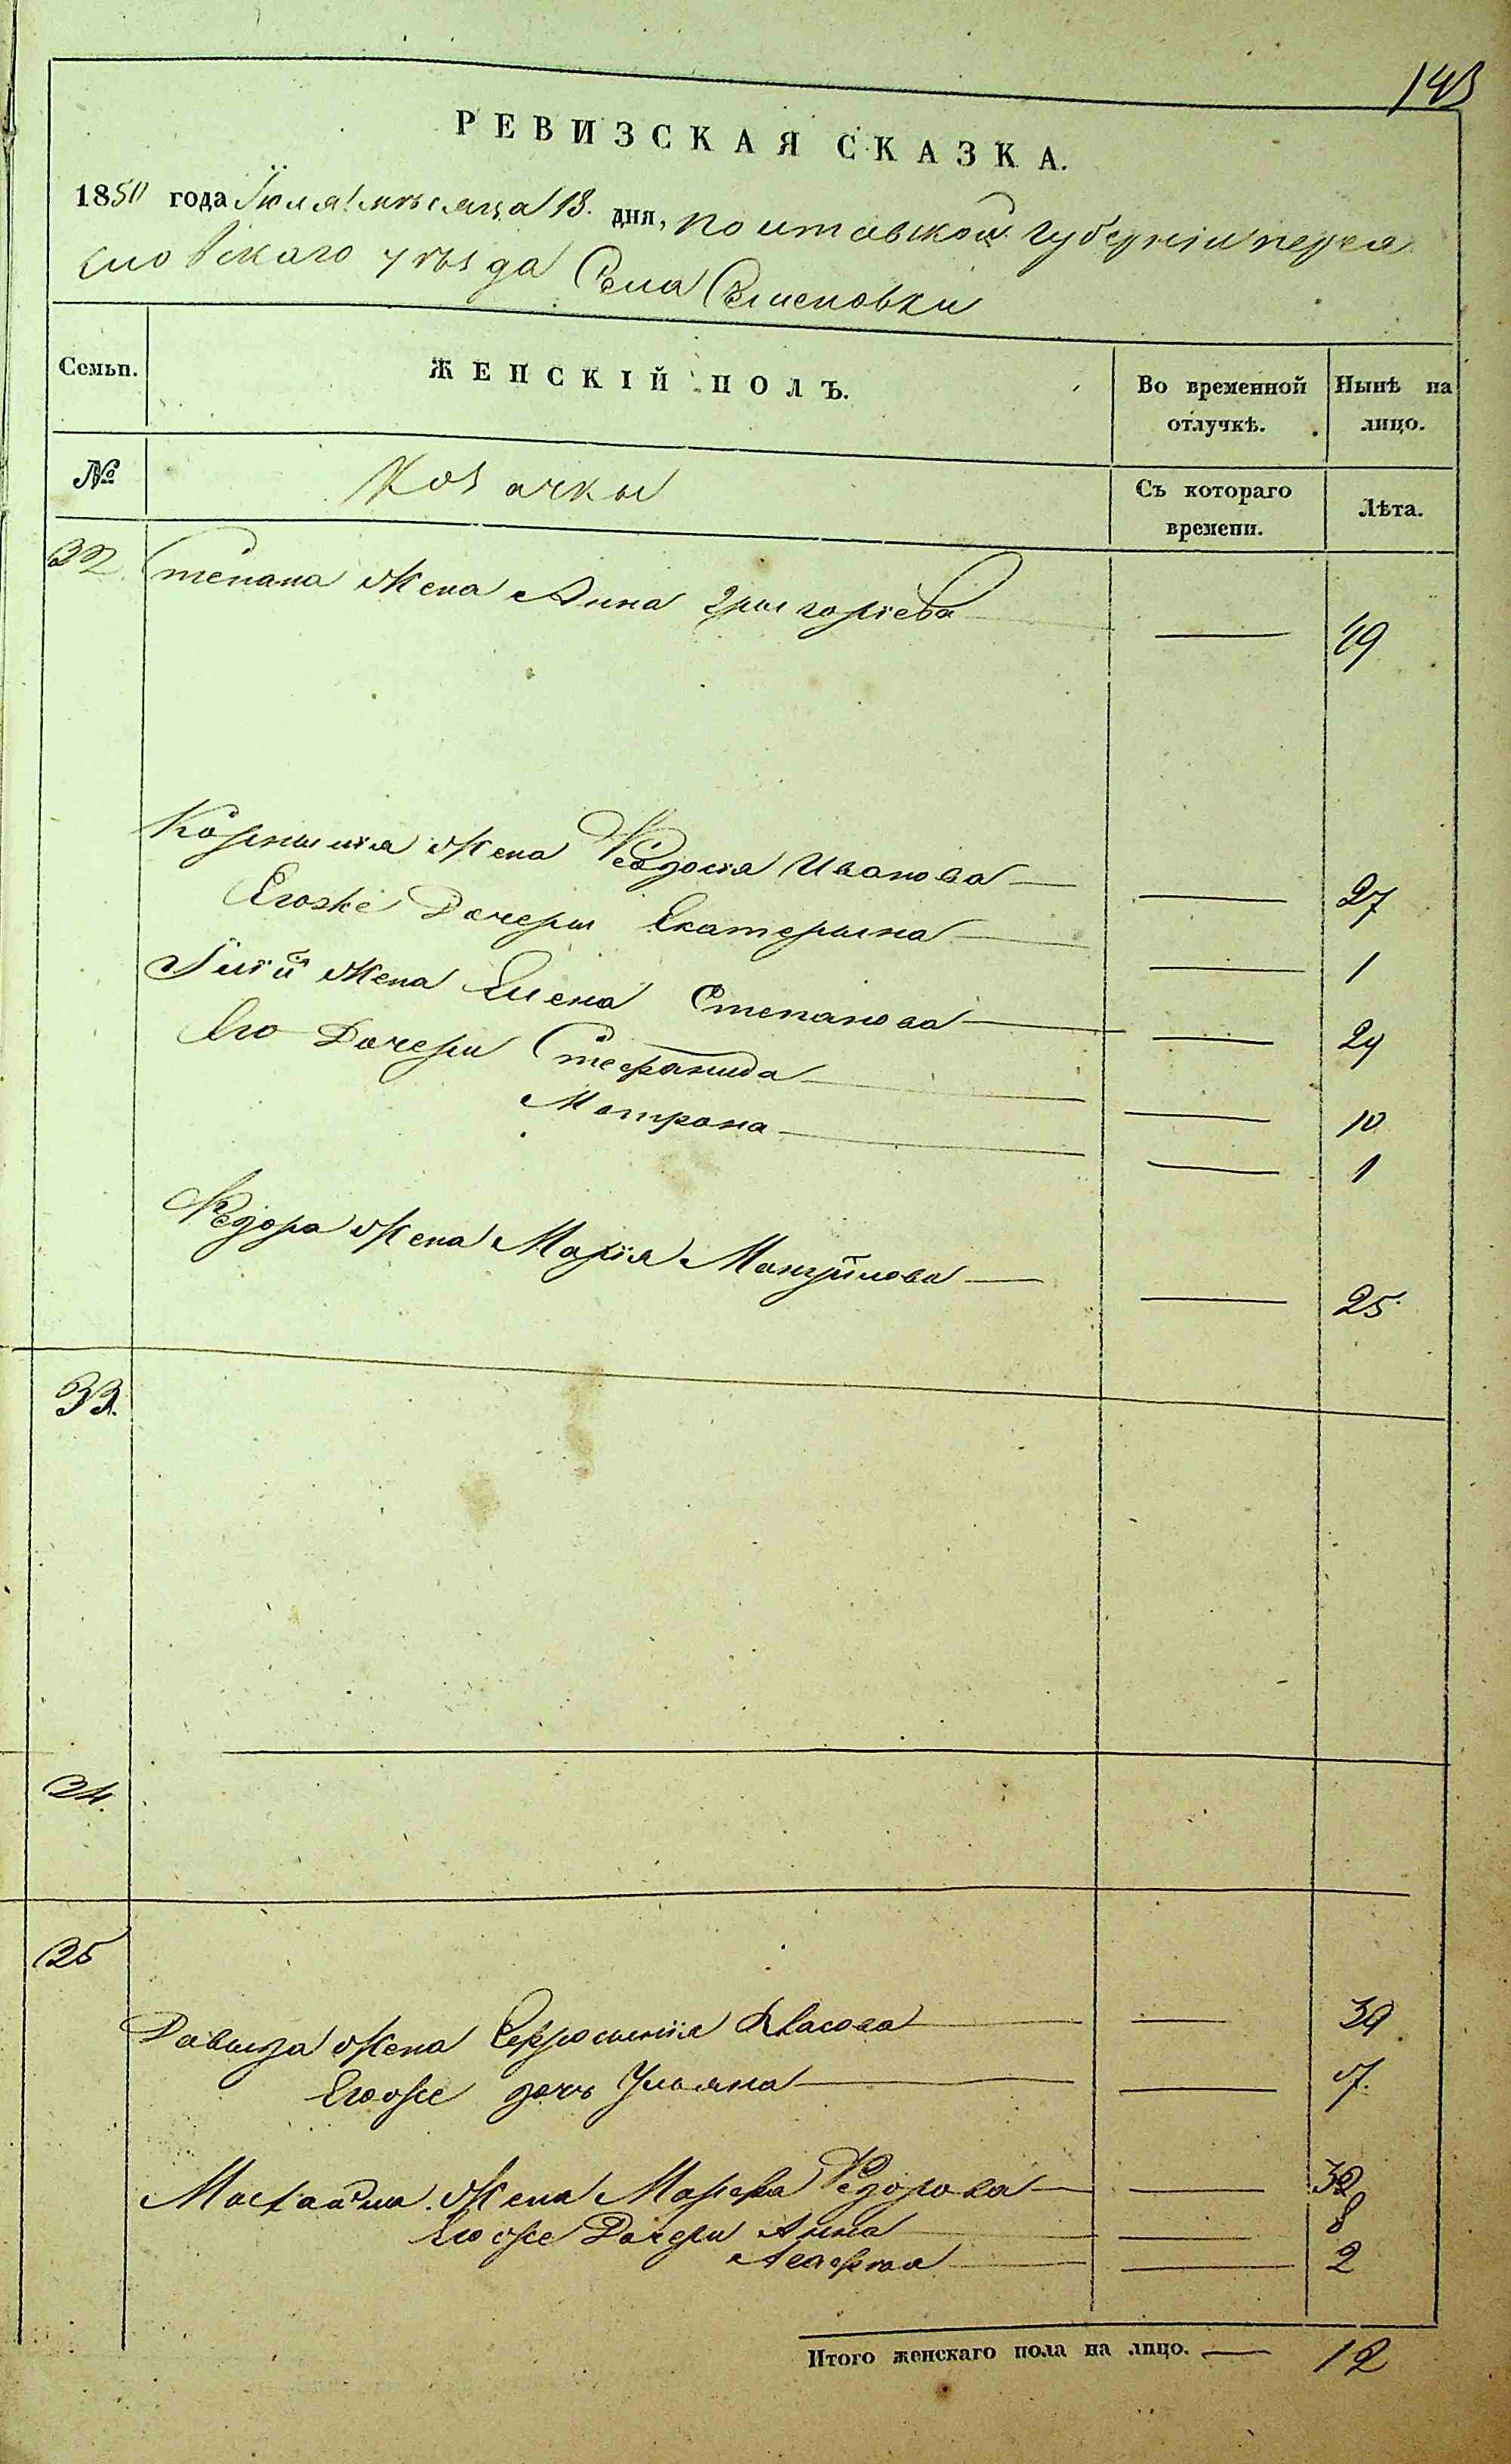 143
РЕВИЗСКАЯ СКАЗКА.
1850 года Іюля мѣсяца 13. дня, полтавской губерніи перея
словскаго уѣзда Села Семеновки
Семьи. ЖЕНСКІЙ ПОЛЪ. Во временной отлучкѣ. Нынѣ на лицо.
№ Козачки Съ котораго времени. Лѣта.
32 Степана Жена Анна григоріева — 49
Корнилія Жена Феодосія Иванова — 27
Егоже Дочери Екатерина — 1
Жена Елена Степанова — 29
Его Дочери Стефанида — 10
Матрона — 1
Федора Жена Марія Мануйлова — 25
33.
34.
35
Давыда Жена Евфросинія Власова — 39
Егоже дочь Ульяна — 7.
Жена Марфа Федорова — 32
Егоже Дочери Анна — 8
— 2
Итого женскаго пола на лицо. — 12